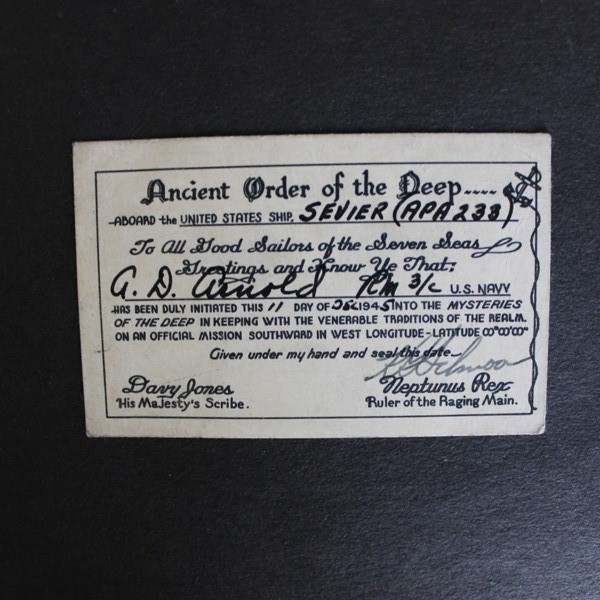 Ancient Order of the Deep....
ABOARD the UNITED STATES SHIP, SEVIER (APA 233)
To All Good Sailors of the Seven Seas
Greetings and Know Ye That:
A. D. Arnold RM 3/c U.S. NAVY
HAS BEEN DULY INITIATED THIS 11 DAY OF 1945 INTO THE MYSTERIES
OF THE DEEP IN KEEPING WITH THE VENERABLE TRADITIONS OF THE REALM.
ON AN OFFICIAL MISSION SOUTHWARD IN WEST LONGITUDE-LATITUDE 00°00'00"
Given under my hand and seal this date
Davy Jones
His Majesty's Scribe.
Neptunus Rex
Ruler of the Raging Main.